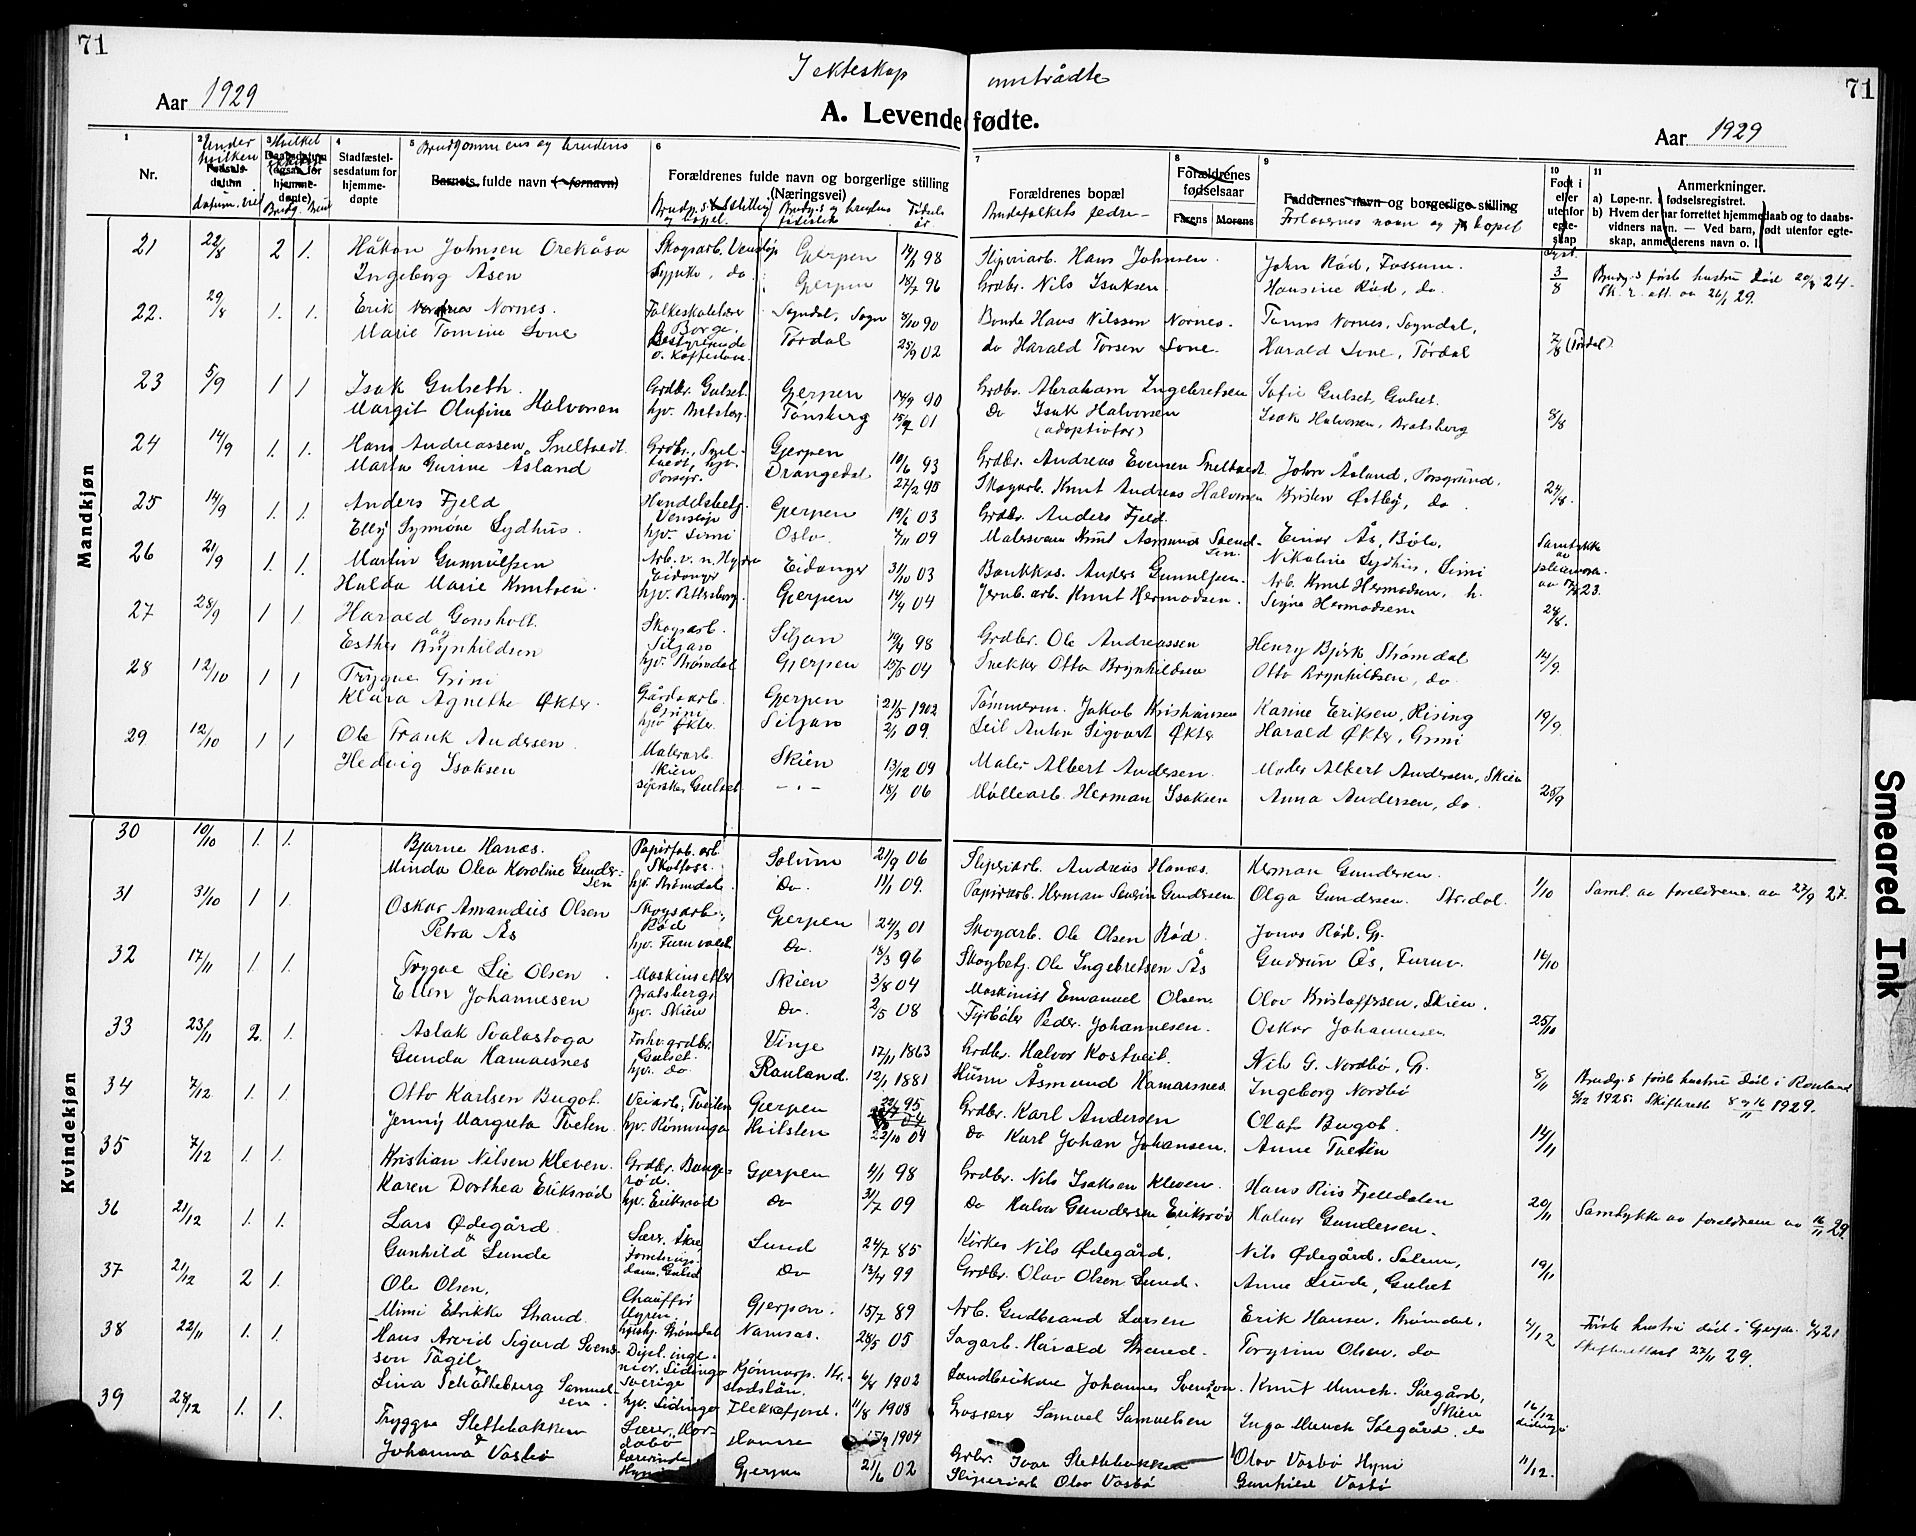 71
71
I ekteskap inntrådte
Aar 1929
A. Levendefødte.
Aar 1929
1 Nr.
2 Under hvilken Fødselsdatum datum. viet
3 Hvilket Daabsdatum (ogsaa for hjemmedøpte) Brudg. Brud
4 Stadfæstelsesdatum for hjemmedøpte
5 Brudgommens og brudens Barnets fulde navn (fornavn)
6 Forældrenes fulde navn og borgerlige stilling (Næringsvei)
7 Forældrenes bopæl Brudefolkets fedre
8 Forældrenes fødselsaar Farens Morens
9 Faddernes navn og borgerlige stilling Forlovernes navn og bopel
10 Født i eller utenfor egteskap
11 Anmerkninger.
a) Løpe-nr. i fødselsregistret.
b) Hvem der har forrettet hjemmedaab og to daabsvidners navn. — Ved barn, født utenfor egteskap, anmelderens navn o. l.
Mandkjøn
21 22/8 2 1. Håkon Johnsen Orekåsa Skogsarb. Venstøp Gjerpen 98 Sliperiarb. Hans Johnsen. John Rød, Fossum. 3/8 Brudg.s første hustru død 24.
Ingeborg Åsen do. Gjerpen 96 Grdbr. Nils Isaksen Hansine Rød, do. Sk. r. att. av 26/1 29.
22. 29/8 1. 1. Erik Nornes. Folkeskolelærer Borge. Sogndal, Sogn 90 Bonde Hans Nilssen Nornes. Nornes, Sogndal, 7/8 (Tørdal)
Marie Tomine Lone Bestyrerinde Tørdal 25/9 02 do Harald Torsen Lone. Harald Lone, Tørdal
23 5/9 1 1 Isak Gulseth. Grdbr. Gulset. Gjerpen 90 Grdbr. Abraham Ingebretsen Sofie Gulset, Gulset. 8/8
Margit Olufine Halvorsen hjv. Bratsberg. Tønsberg 01 do Isak Halvorsen (adoptivfar) Isak Halvorsen, Bratsberg
24 14/9 1. 1. Hans Andreassen Sneltvedt. Grdbr., Sneltvedt, Gjerpen 10/6 93 Grdbr. Andreas Evensen Sneltvedt John Åsland, Porsgrund. 24/8.
Marta Gurine Åsland hjv. Porsgr. Drangedal 27/2 95 Skogarb. Knut Andreas Halvorsen Kristen Østby, do.
25 14/9 1. 1. Anders Fjeld Handelsbetj. Venstøp Gjerpen 19/6 03 Grdbr. Anders Fjeld. Einar Ås, Bøle.
Elly Synnøve Sydhus. hjv. Limi Oslo. 7/11 09 Malersvenn Knut Asmund Svendsen. Nikoline Sydhus, Limi Samtykke av 23.
26 21/9 1. 1. Martin Gunnulfsen Arb. v. n. Hydro Eidanger Eidanger 31/10 03 Bankkas. Anders Gunulfsen. Arb. Knut Hermodsen, h. 24/8.
Hulda Marie Knutsen. hjv. Gjerpen 14/4 04 Jernb. arb. Knut Hermodsen. Signe Hermodsen
27 28/9 1 1 Harald Gonsholt. Skogsarb. Siljan Siljan 98 Grdbr. Ole Andreassen Henry Bjørk Strømdal 14/9.
og Esther Brynhildsen hjv. Strømdal Gjerpen 15/5 04 Snekker Otto Brynhildsen Otto Brynhildsen, do.
28 12/10 1 1 Trygve Grini Gårdsarb. Grini Gjerpen 21/5 1902 Tømmerm. Jakob Kristiansen Karine Eriksen, Rising 19/9.
Klara Agnethe Økter. hjv Økter. Siljan 2/1 09. Anton Sigvart Økter Harald Økter, Grini
29 12/10 1 1 Ole Frank Andersen. Malerarb. Skien Skien 13/12 09 Maler Albert Andersen. Maler Albert Andersen, Skien 25/9
Hedvig Isaksen syerske, Gulset — . — 18/1 06 Møllearb. Herman Isaksen Anna Andersen, do.
Kvindekjøn
30 10/10 1. 1. Bjarne Hanås. Papirfab. arb. Skotfoss. Solum 21/9 06 Sliperiarb. Andreas Hanås. Herman Gundersen. 1/10 Samt. av foreldrene av 27/9 27.
Minda Olea Karoline Gundersen hjv. Strømdal. Do. 11/1 09. Papirarb. Herman Severin Gundersen. Olga Gundersen. Strdal.
31 31/10 1 1. Oskar Amandus Olsen Skogsarb., Rød Gjerpen 24/3 01 Skogarb. Ole Olsen Rød. Jonas Rød, G. 14/10
Petra Ås hjv. Do. 18/3 96 Skogbetj. Ole Ingebretsen Ås Gudrun Ås,
32 17/11 1. 1. Trygve Lie Olsen. Maskinsetter Bratsberg. Skien 3/8 04 Maskinist Emanuel Olsen. Olav Kristoffersen, Skien. 25/10
Ellen Johannesen hjv. Skien Do. 2/5 08 Fyrbøter Peder Johannesen. Oskar Johannesen
33 23/11 2. 1. Aslak Svalastoga Forhv. grdbr. Gulset. Vinje 17/11 1863 Grdbr. Halvor Kostveit. Nils G. Nordbø, G. 8/11 Brudg.s første hustru død i Rauland
Gunda Hamarsnes hjv. do Rauland. 12/1 1881 Husm Åsmund Hamarsnes. Ingeborg Nordbø 1925. Skifterett 1929.
34 7/12 1. 1. Otto Karlsen Bugot. Veiarb., Tveiten Gjerpen 95 Grdbr. Karl Andersen Olaf Bugot. 14/11
Jenny Margreta Tveten. hjv. Rønninga 22/10 04 Do Karl Johan Johansen. Anne Tveten
35 7/12 1. 1. Kristian Nilsen Kleven. Grdbr. Gjerpen 4/1 98 Grdbr. Nils Isaksen Kleven. Hans Riis Fjelldalen 20/11 Samtykke av foreldrene av 16/11 29.
Karen Dorthea Eriksrød hjv. Eriksrød Do 31/7 09 Do Halvor Gundersen Eriksrød Halvor Gundersen.
36 21/12 1. 1. Lars Ødegård Lærer, Lund 24/7 85 Kirkes Nils Ødegård. Nils Ødegård, Solum, 19/11
& Gunhild Lunde Gulset Do 99 Grdbr. Olav Olsen Lund. Anne Lunde, Gulset
37 21/12 2 1. Ole Olsen. Chauffør Gjerpen. 15/7 89 Arb. Gudbrand Larsen Erik Hansen, Strømdal, 4/12 Første hustru død i Gjerpen 21
Mimi Elrikke Strand. Strømdal Namsos. 28/5 05 Sagarb. Harald Strand. Torgrim Olsen, do Skifterettsatt 27/11 29.
38 22/11 1. 1. Hans Arvid Sigurd Svensson Tågil Dipl. ingeniør, Lidingø Sverige 6/8 1902 Landbrukare Johannes Svensson. Knut Munch. Søegård, Skien 16/12
& Lina Scholleburg Samuelsen. hjv. Lidingø Flekkefjord. 11/8 1908 Grosserer Samuel Samuelsen Inga Munch Søegård, do
39 28/12 1. 1. Tryggve Slettebakken Lærer, 1904 Grbr. Ivar Slettebakken Olav Vasbø Hyni 11/12.
& Johanna Vasbø Lærerinde Gjerpen 21/6 02 Sliperiarb Olav Vasbø Gunhild Vasbø
Smeared Ink